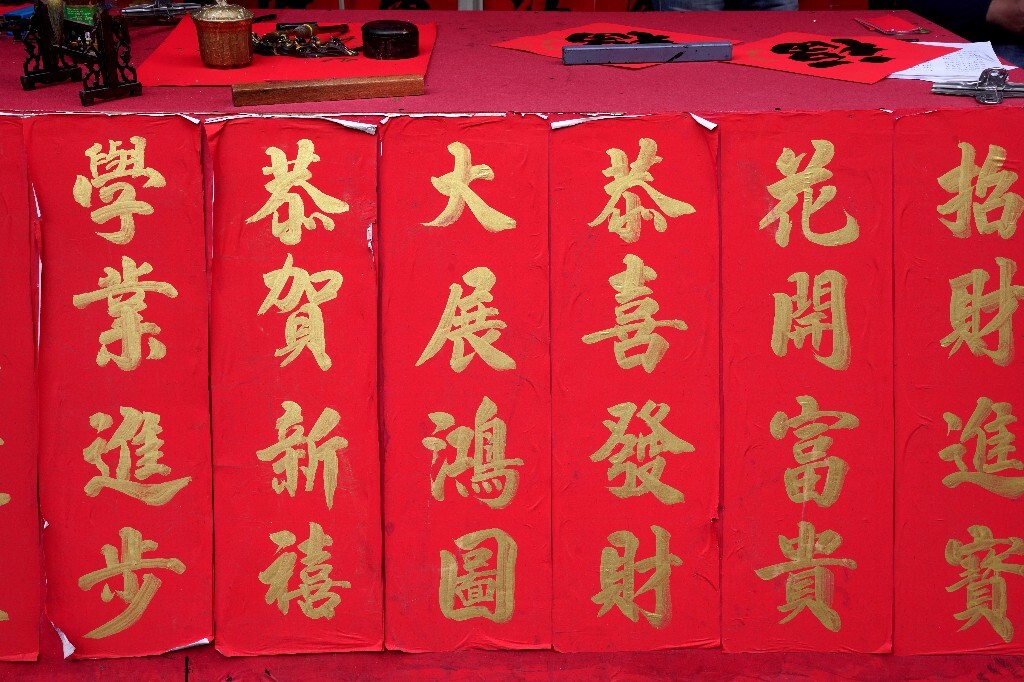 學業進步
恭賀新禧
大展鴻圖
恭喜發財
花開富貴
招財進寶